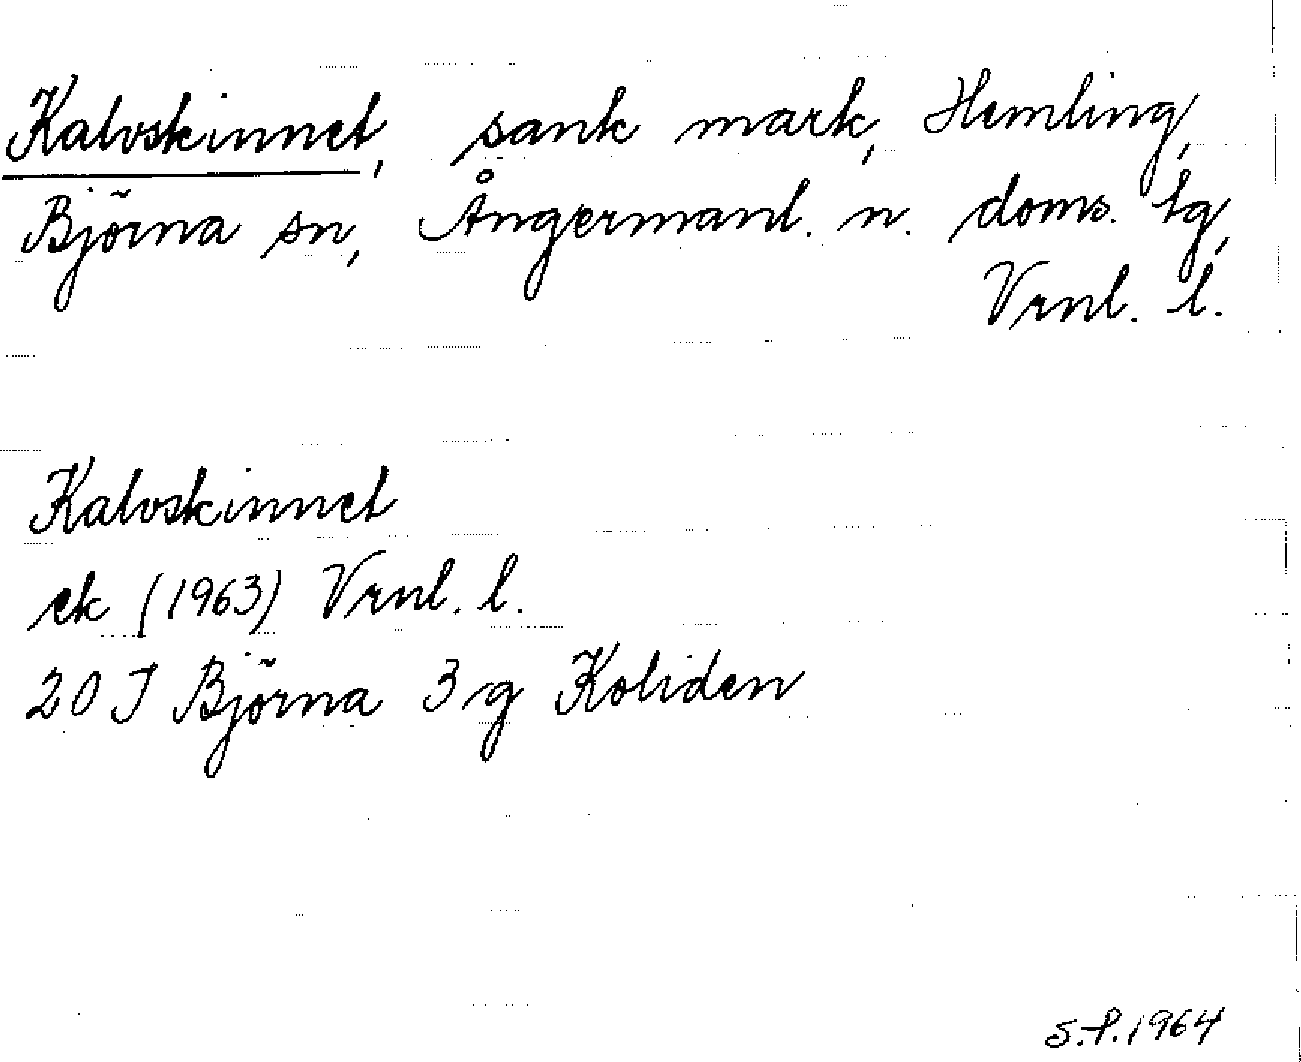 Kalvskinnet, sank mark, Hemling,
Björna sn, Ångermanl. n. doms. lg,
Vrnl. l.
Kalvskinnet
ek (1963) Vrnl. l.
20 J Björna 3 g Koliden
S.P. 1964